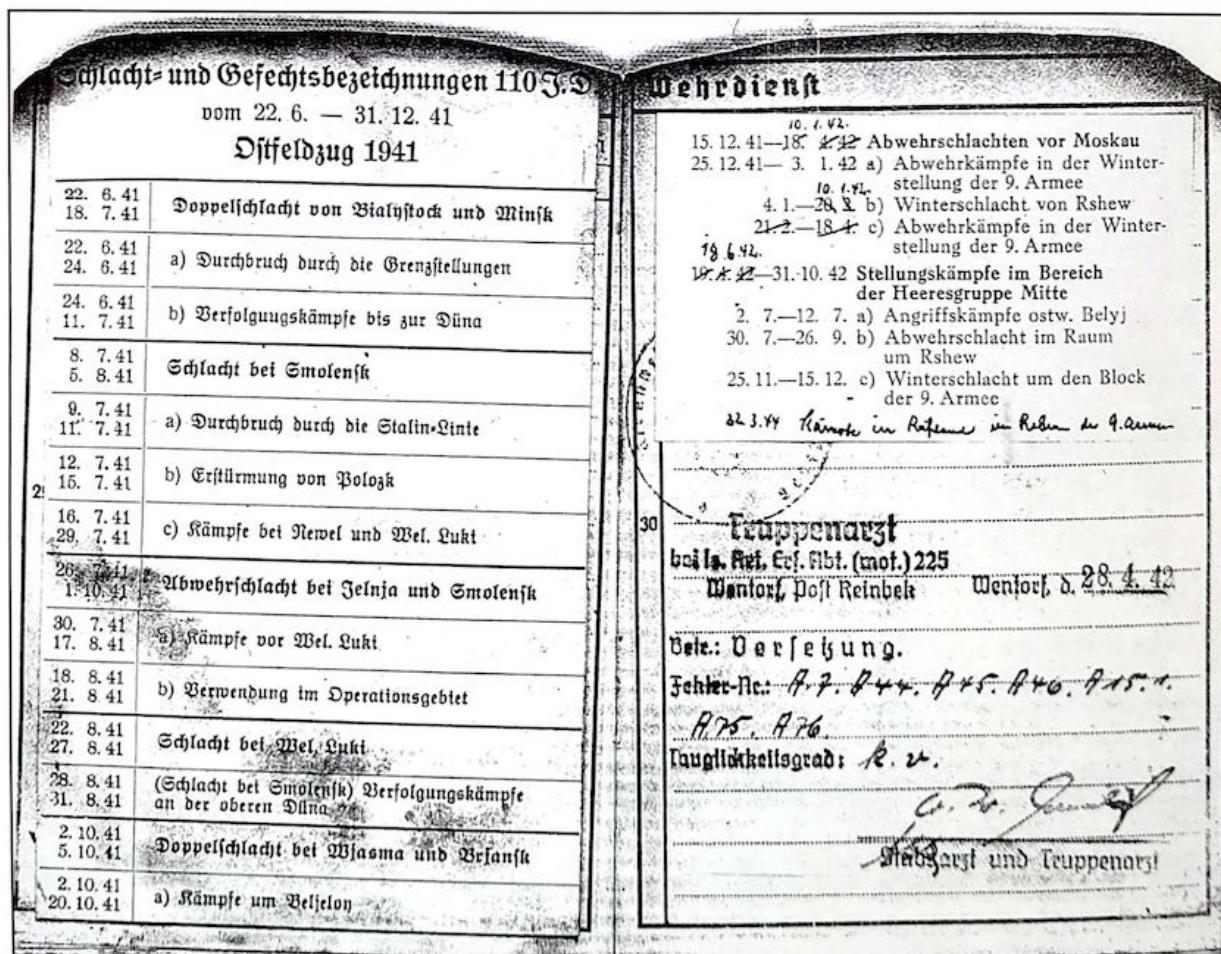 Schlacht- und Gefechtsbezeichnungen 110 J.D.
vom 22. 6. — 31. 12. 41
Ostfeldzug 1941
22. 6. 41
18. 7. 41
Doppelschlacht von Bialystock und Minsk
22. 6. 41
24. 6. 41
a) Durchbruch durch die Grenzstellungen
24. 6. 41
11. 7. 41
b) Verfolguugskämpfe bis zur Düna
8. 7. 41
5. 8. 41
Schlacht bei Smolensk
9. 7. 41
11. 7. 41
a) Durchbruch durch die Stalin-Linie
12. 7. 41
15. 7. 41
b) Erstürmung von Polozk
16. 7. 41
29. 7. 41
c) Kämpfe bei Newel und Wel. Luki
26. 7. 41
1. 10. 41
Abwehrschlacht bei Jelnja und Smolensk
30. 7. 41
17. 8. 41
a) Kämpfe vor Wel. Luki
18. 8. 41
21. 8. 41
b) Verwendung im Operationsgebiet
22. 8. 41
27. 8. 41
Schlacht bei Wel. Luki
28. 8. 41
31. 8. 41
(Schlacht bei Smolensk) Verfolgungskämpfe
an der oberen Düna
2. 10. 41
5. 10. 41
Doppelschlacht bei Wjasma und Brjansk
2. 10. 41
20. 10. 41
a) Kämpfe um Beljeloy
Wehrdienst
10. 1. 42.
15. 12. 41—18. 4. 42 Abwehrschlachten vor Moskau
25. 12. 41— 3. 1. 42 a) Abwehrkämpfe in der Winter-
stellung der 9. Armee
10. 1. 42.
4. 1.—20. 2. b) Winterschlacht von Rshew
21. 2.—18. 4. c) Abwehrkämpfe in der Winter-
stellung der 9. Armee
18. 6. 42.
19. 4. 42—31. 10. 42 Stellungskämpfe im Bereich
der Heeresgruppe Mitte
2. 7.—12. 7. a) Angriffskämpfe ostw. Belyj
30. 7.—26. 9. b) Abwehrschlacht im Raum
um Rshew
25. 11.—15. 12. c) Winterschlacht um den Block
der 9. Armee
22. 3. 44 in der 9. Armee
30
Truppenarzt
bei le. Art. Ers. Abt. (mot.) 225
Wentorf, Post Reinbek Wentorf, d. 28. 4. 42
Betr.: Versetzung.
Fehler-Nr.: A 7. A 44. A 45. A 46. A 15. 1.
A 75. A 76.
Tauglichkeitsgrad: k. v.
Stabsarzt und Truppenarzt